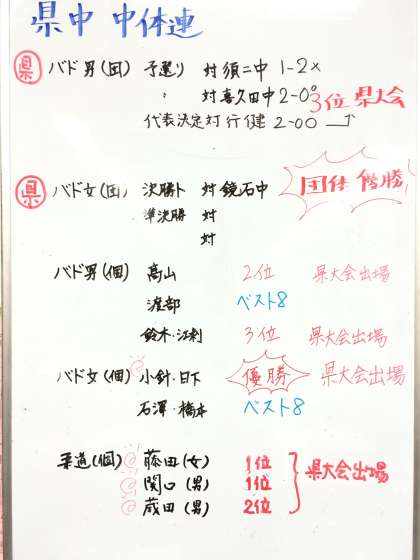 県中 中体連
県 バド男(団) 予選リ 対須二中 1-2×
〃 対喜久田中 2-0○ 3位 県大会
代表決定対行健 2-0○
県 バド女(団) 決勝ト 対鏡石中 団体優勝
準決勝 対
対
バド男(個) 高山 2位 県大会出場
渡部 ベスト8
鈴木・江刺 3位 県大会出場
バド女(個) 小針・日下 優勝 県大会出場
石澤・橋本 ベスト8
柔道(個) 藤田(女) 1位
関口(男) 1位 県大会出場
蔵田(男) 2位